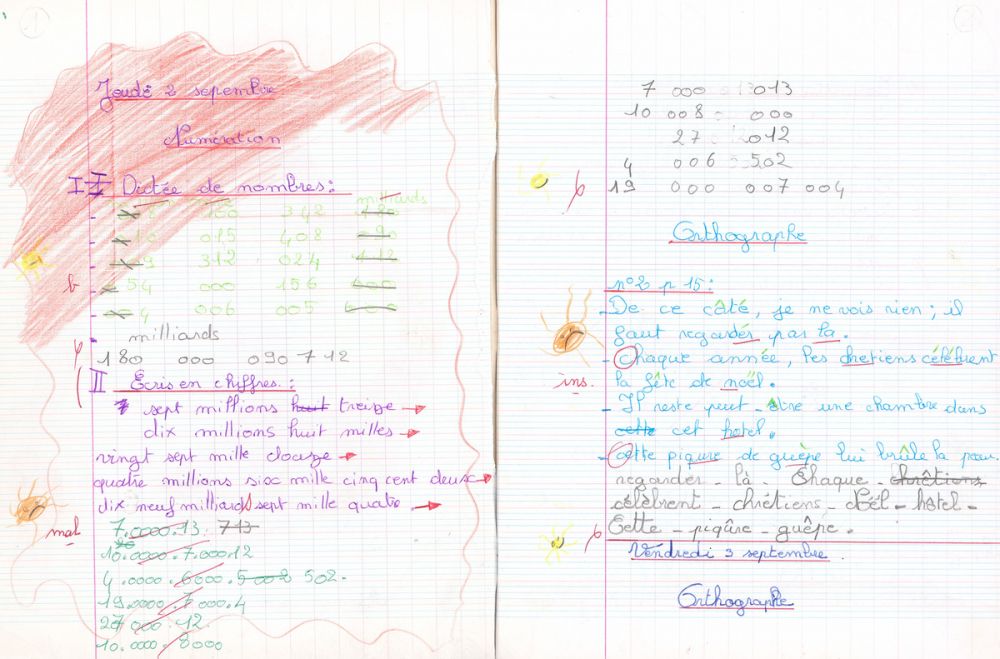 1
Jeudi 2 sepembre
Numération
I Dictée de nombres :
milliards
100 342 180
015 408 090
312 024 112
54 000 156 000
4 006 005 000
milliards
180 000 090 712
II Écris en chiffres :
sept millions huit treize
dix millions huit milles
vingt sept mille douze
quatre millions six mille cinq cent deux
dix neuf milliards sept mille quatre
mal
7.0000.13. 713
10.0000.7.00012
4.0000.6000.5002 502.
19.0000.7000.4
27000.12
10.0000.8000
7 000 013
10 008 000
27 012
4 006 502
19 000 007 004
Orthographe
n°2 p 15 :
De ce côté, je ne vois rien ; il
faut regarder par la.
Chaque année, les chretiens célèbrent
ins. la fête de noël.
Il reste peut-être une chambre dans
cette cet hotel.
Cette piqure de guèpe lui brûle la peau.
regarder - là - Chaque - chrêtiens
célèbrent - chrétiens - Noël - hôtel -
Cette - piqûre - guêpe.
Vendredi 3 septembre.
Orthographe